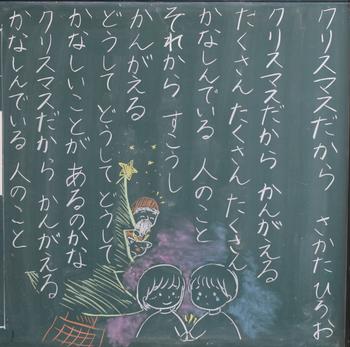 クリスマスだから　さかたひろお
クリスマスだから　かんがえる
たくさん　たくさん　たくさん
かなしんでいる　人のこと
それから　すこうし
かんがえる
どうして　どうして　どうして
かなしいことが　あるのかな
クリスマスだから　かんがえる
かなしんでいる　人のこと